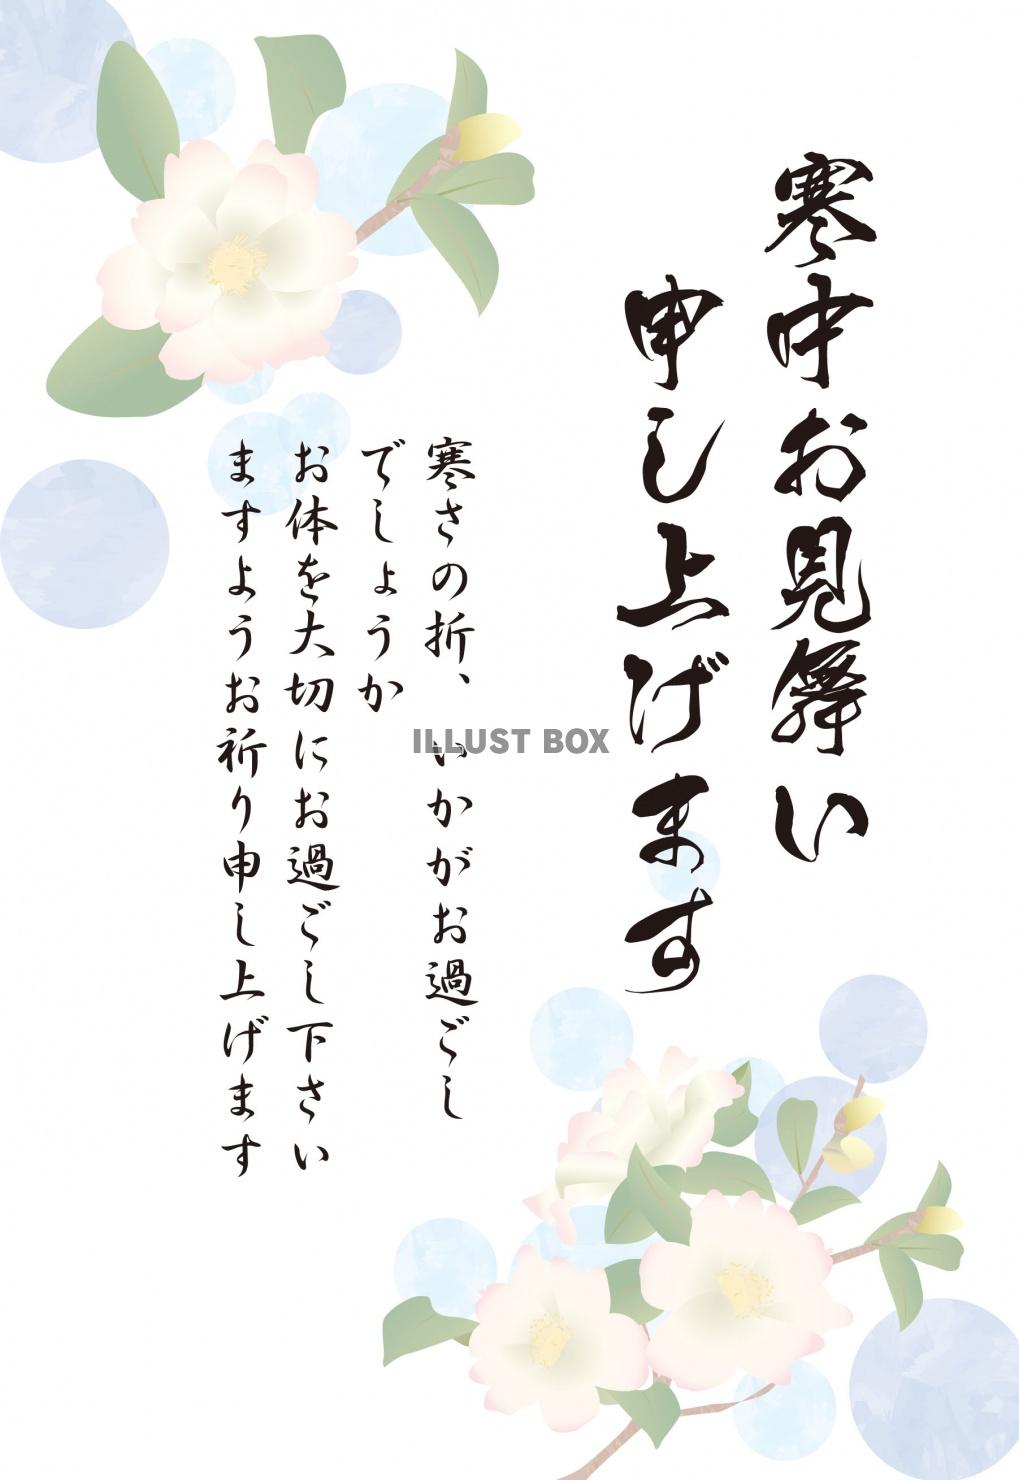 寒中お見舞い
申し上げます
寒さの折、いかがお過ごし
でしょうか
お体を大切にお過ごし下さい
ますようお祈り申し上げます
ILLUST BOX